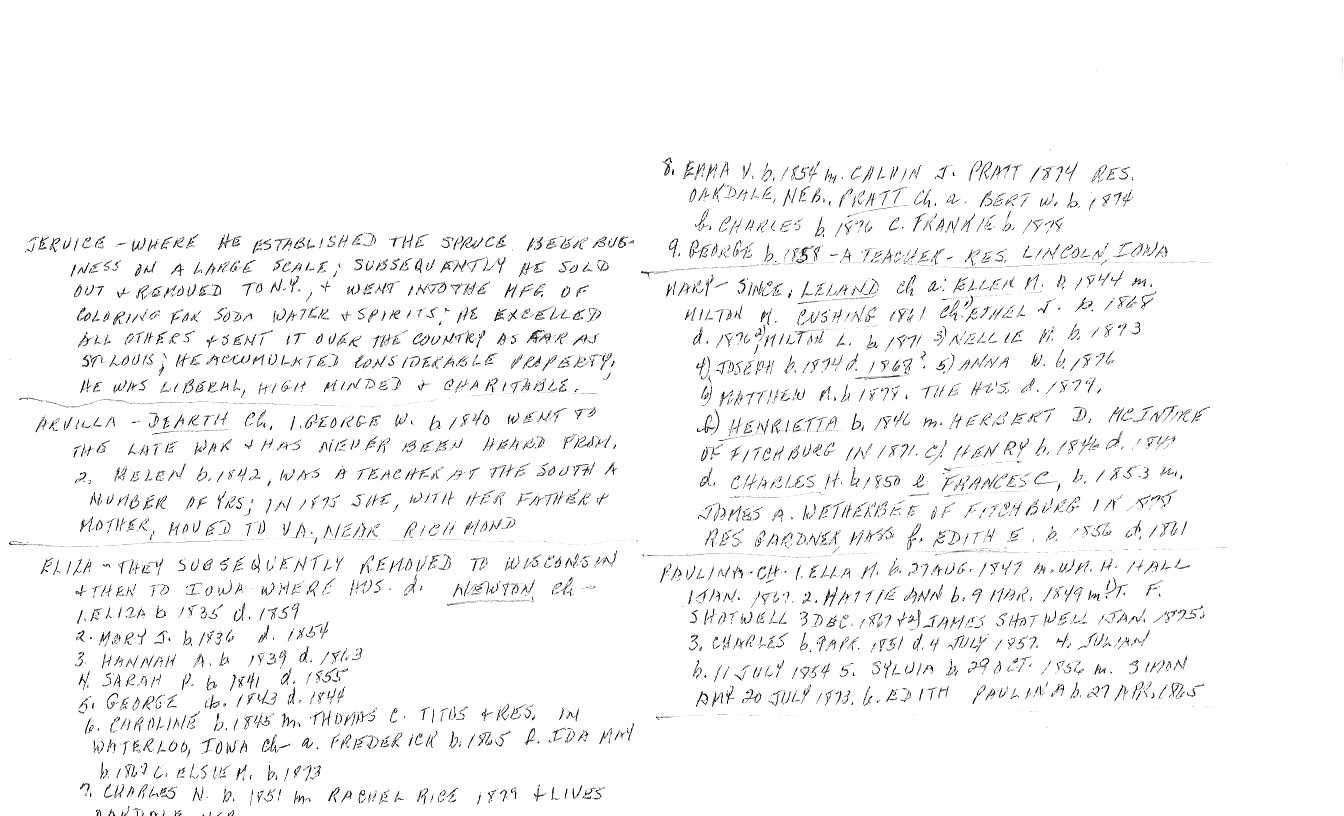 SERVICE - WHERE HE ESTABLISHED THE SPRUCE BEER BUS-
INESS ON A LARGE SCALE; SUBSEQUENTLY HE SOLD
OUT + REMOVED TO N.Y., + WENT INTO THE MFG. OF
COLORING FOR SODA WATER + SPIRITS; HE EXCELLED
ALL OTHERS + SENT IT OVER THE COUNTRY AS FAR AS
ST. LOUIS; HE ACCUMULATED CONSIDERABLE PROPERTY,
HE WAS LIBERAL, HIGH MINDED + CHARITABLE.
ARVILLA - DEARTH Ch. 1. GEORGE W. b 1840 WENT TO
THE LATE WAR + HAS NEVER BEEN HEARD FROM.
2. HELEN b. 1842, WAS A TEACHER AT THE SOUTH A
NUMBER OF YRS; IN 1875 SHE, WITH HER FATHER +
MOTHER, MOVED TO VA., NEAR RICHMOND
ELIZA - THEY SUBSEQUENTLY REMOVED TO WISCONSIN
+ THEN TO IOWA WHERE HUS. d. NEWTON Ch -
1. ELIZA b 1835 d. 1859
2. MARY J. b. 1836 d. 1854
3. HANNAH A. b 1839 d. 1863
4. SARAH P. b 1841 d. 1855
5. GEORGE b. 1843 d. 1844
6. CAROLINE b. 1845 m. THOMAS C. TITUS + RES. IN
WATERLOO, IOWA Ch - a. FREDERICK b. 1865 b. IDA MAY
b. 1867 C. ELSIE M. b. 1873
7. CHARLES N. b. 1851 m RACHEL RICE 1879 + LIVES
OAKDALE, NEB.
8. EMMA V. b. 1854 m. CALVIN J. PRATT 1874 RES.
OAKDALE, NEB., PRATT Ch. a. BERT W. b. 1874
b. CHARLES b. 1876 C. FRANKIE b. 1878
9. GEORGE b. 1858 - A TEACHER - RES. LINCOLN, IOWA
MARY - SINCE, LELAND Ch a: ELLEN M. b. 1844 m.
MILTON M. CUSHING 1861 Ch. 1) ETHEL J. b. 1868
d. 1876 2) MILTON L. b 1871 3) NELLIE M. b. 1873
4) JOSEPH b. 1874 d. 1868? 5) ANNA W. b. 1876
6) MATTHEW M. b 1878. THE HUS. d. 1879.
b) HENRIETTA b. 1846 m. HERBERT D. MCINTIRE
OF FITCHBURG IN 1871. C) HENRY b. 1846 d. 1847
d. CHARLES H. b 1850 e FRANCES C, b. 1853 m.
JAMES A. WETHERBEE OF FITCHBURG IN 1875
RES GARDNER, MASS f. EDITH E. b. 1856 d. 1861
PAULINA - CH - 1. ELLA M. b. 27 AUG. 1847 m. WM. H. HALL
1 JAN. 1867. 2. HATTIE ANN b. 9 MAR. 1849 m 1) T. F.
SHOTWELL 3 DEC. 1867 + 2) JAMES SHOTWELL 1 JAN. 1875;
3. CHARLES b. 9 APR. 1851 d. 4 JULY 1857. 4. JULIAN
b. 11 JULY 1854 5. SYLVIA b. 29 OCT. 1856 m. SIMON
20 JULY 1873. 6. EDITH PAULINA b. 27 APR. 1865